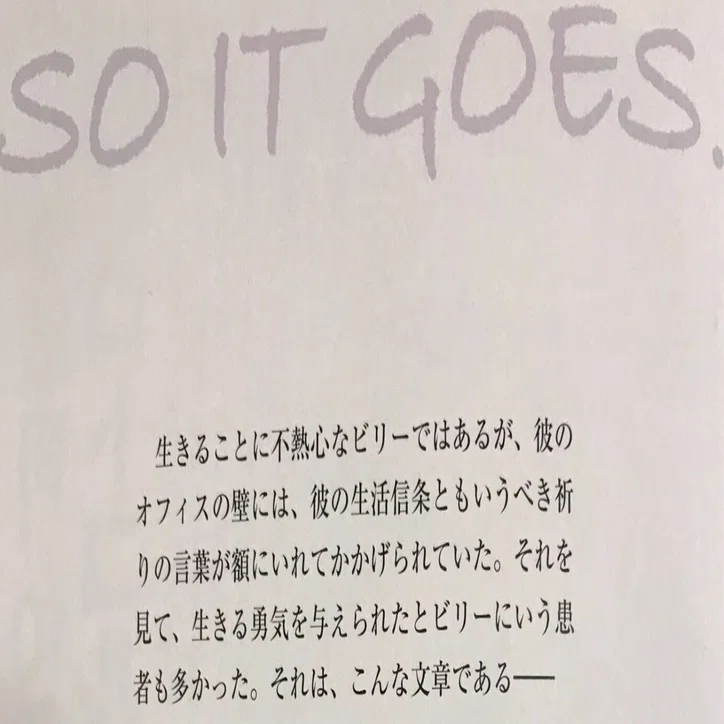 SO IT GOES.
生きることに不熱心なビリーではあるが、彼の
オフィスの壁には、彼の生活信条ともいうべき祈
りの言葉が額にいれてかかげられていた。それを
見て、生きる勇気を与えられたとビリーにいう患
者も多かった。それは、こんな文章である──